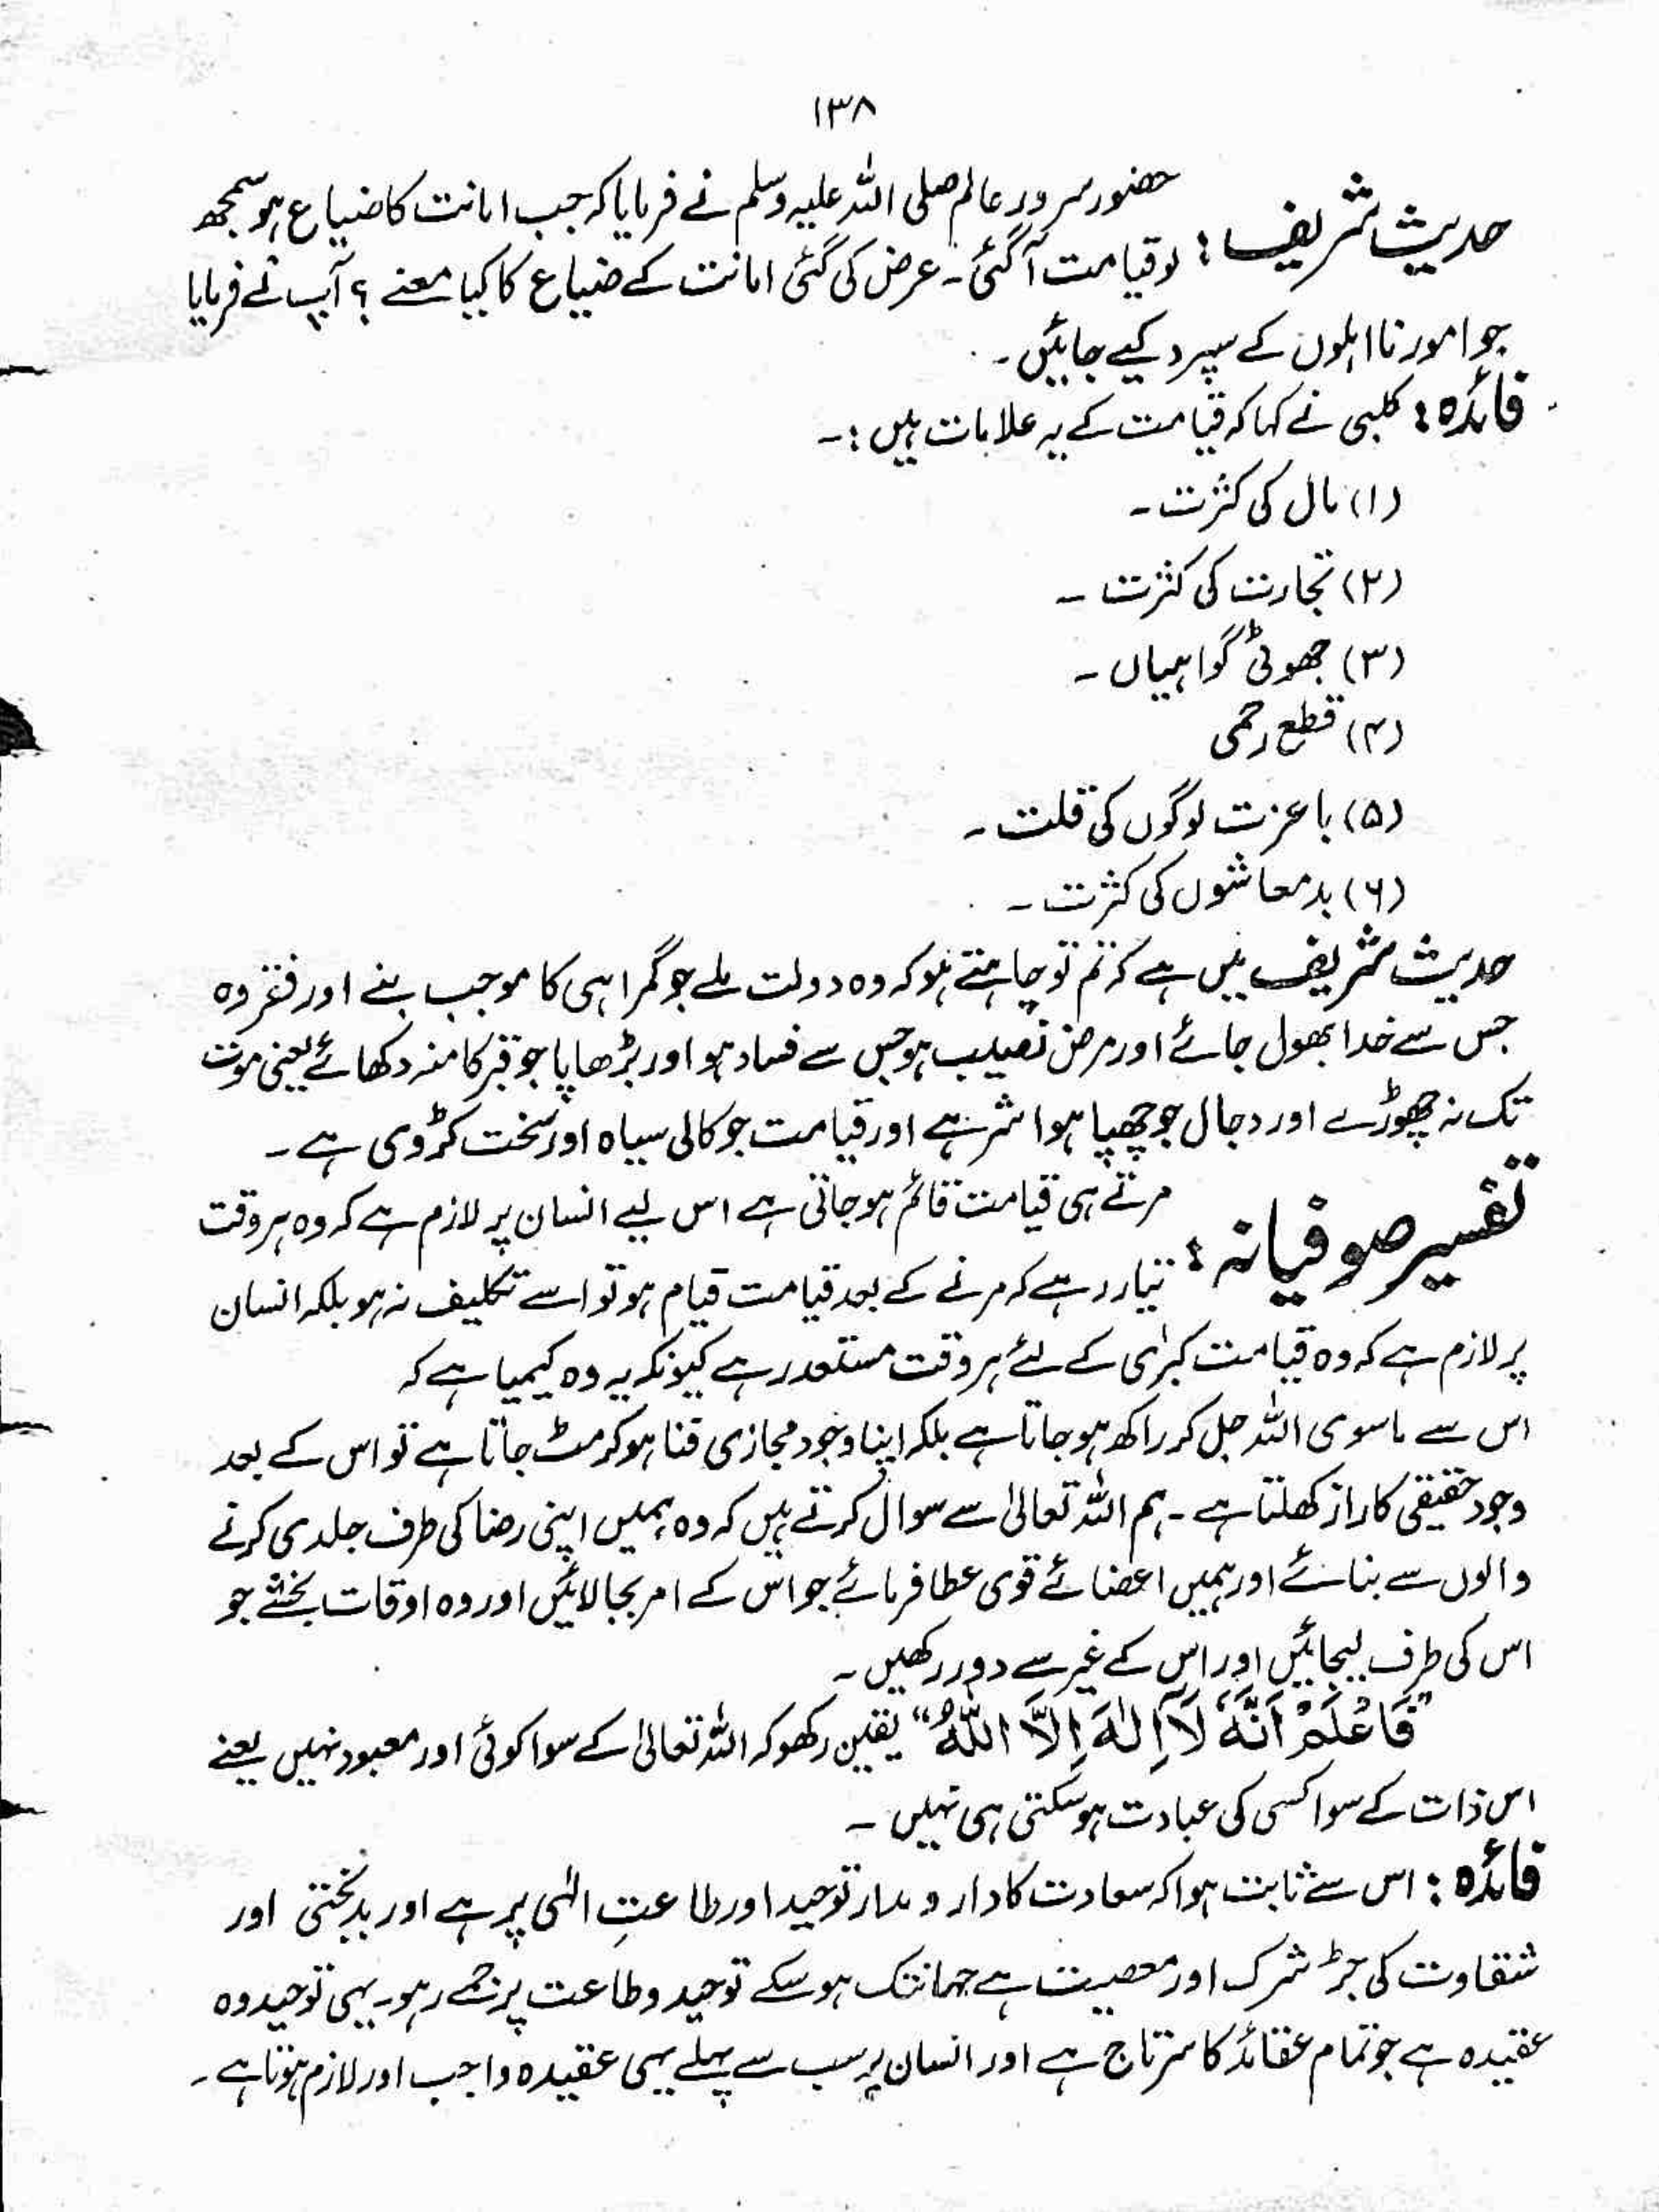 ۱۳۸
حدیث شریف : حضور سرور عالم صلی اللہ علیہ وسلم نے فرمایا کہ جب امانت کا ضیاع ہو سمجھ
لو قیامت آگئی ۔ عرض کی گئی امانت کے ضیاع کا کیا معنے ؟ آپ نے فرمایا
جو امور نااہلوں کے سپرد کیے جائیں ۔
فائدہ : کلبی نے کہا کہ قیامت کے یہ علامات ہیں :۔
(۱) مال کی کثرت ۔
(۲) تجارت کی کثرت ۔
(۳) جھوٹی گواہیاں ۔
(۴) قطع رحمی
(۵) باعزت لوگوں کی قلت ۔
(۶) بدمعاشوں کی کثرت ۔
حدیث شریف میں ہے کہ تم تو چاہتے ہو کہ وہ دولت ملے جو گمراہی کا موجب بنے اور فقر وہ
جس سے خدا بھول جائے اور مرض نصیب ہو جس سے فساد ہو اور بڑھاپا جو قبر کا منہ دکھائے یعنی موت
تک نہ چھوڑے اور دجال جو چھپا ہوا شر ہے اور قیامت جو کالی سیاہ اور سخت کڑوی ہے ۔
تفسیر صوفیانہ : مرتے ہی قیامت قائم ہو جاتی ہے اس لیے انسان پر لازم ہے کہ وہ ہر وقت
تیار رہے کہ مرنے کے بعد قیامت قیام ہو تو اسے تکلیف نہ ہو بلکہ انسان
پر لازم ہے کہ وہ قیامت کبرٰی کے لئے ہر وقت مستعد رہے کیونکہ یہ وہ کیمیا ہے کہ
اس سے ماسوی اللہ جل کر راکھ ہو جاتا ہے بلکہ اپنا وجود مجازی فنا ہو کر مٹ جاتا ہے تو اس کے بعد
وجود حقیقی کا راز کھلتا ہے ۔ ہم اللہ تعالیٰ سے سوال کرتے ہیں کہ وہ ہمیں اپنی رضا کی طرف جلدی کرنے
والوں سے بنائے اور ہمیں اعضائے قوی عطا فرمائے جو اس کے امر بجا لائیں اور وہ اوقات بخشے جو
اس کی طرف لیجائیں اور اس کے غیر سے دور رکھیں ۔
”فَاعْلَمْ اَنَّهٗ لَآ اِلٰهَ اِلَّا اللّٰهُ“ یقین رکھو کہ اللہ تعالیٰ کے سوا کوئی اور معبود نہیں یعنے
اس ذات کے سوا کسی کی عبادت ہو سکتی ہی نہیں ۔
فائدہ : اس سے ثابت ہوا کہ سعادت کا دار و مدار توحید اور طاعتِ الٰہی پر ہے اور بدبختی اور
شقاوت کی جڑ شرک اور معصیت ہے جہانتک ہو سکے توحید و طاعت پر جمے رہو ۔ یہی توحید وہ
عقیدہ ہے جو تمام عقائد کا سرتاج ہے اور انسان پر سب سے پہلے یہی عقیدہ واجب اور لازم ہوتا ہے ۔